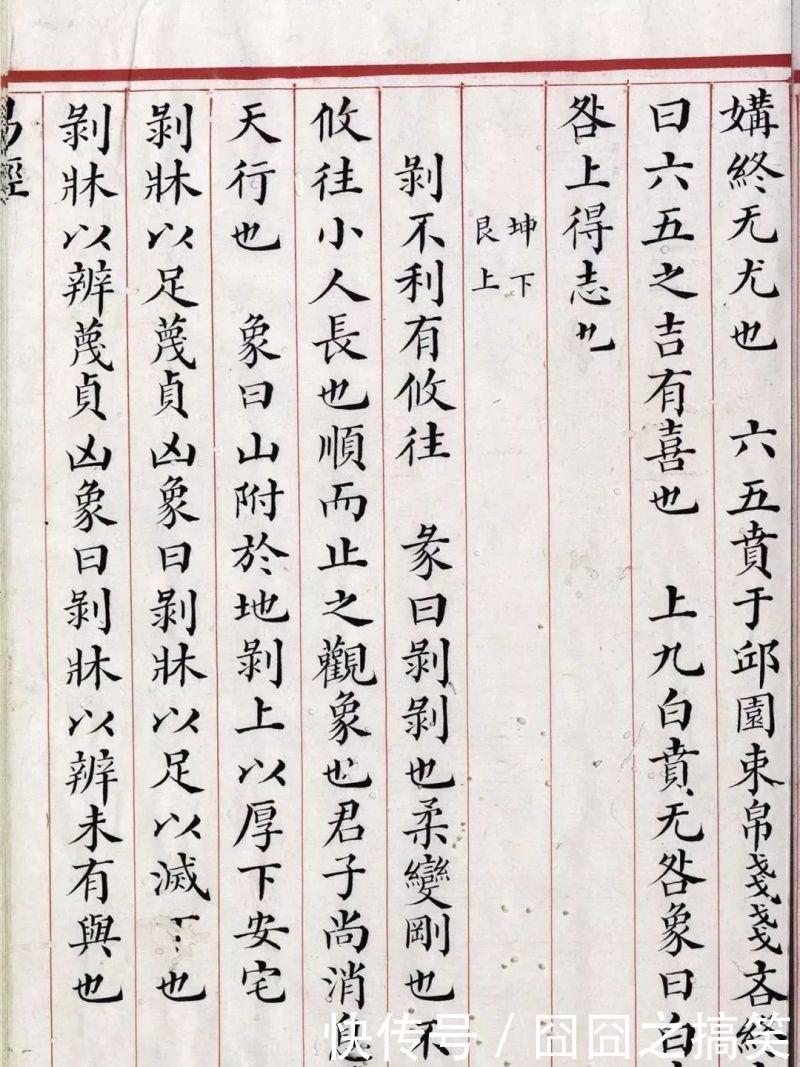 媾終无尤也 六五賁于邱園束帛戔戔吝終
曰六五之吉有喜也 上九白賁无咎象曰白
咎上得志也
坤下
艮上
剝不利有攸往 彖曰剝剝也柔變剛也不
攸往小人長也順而止之觀象也君子尚消息
天行也 象曰山附於地剝上以厚下安宅
剝牀以足蔑貞凶象曰剝牀以足以滅下也
剝牀以辨蔑貞凶象曰剝牀以辨未有與也
易經
快传号 / 囧囧之搞笑